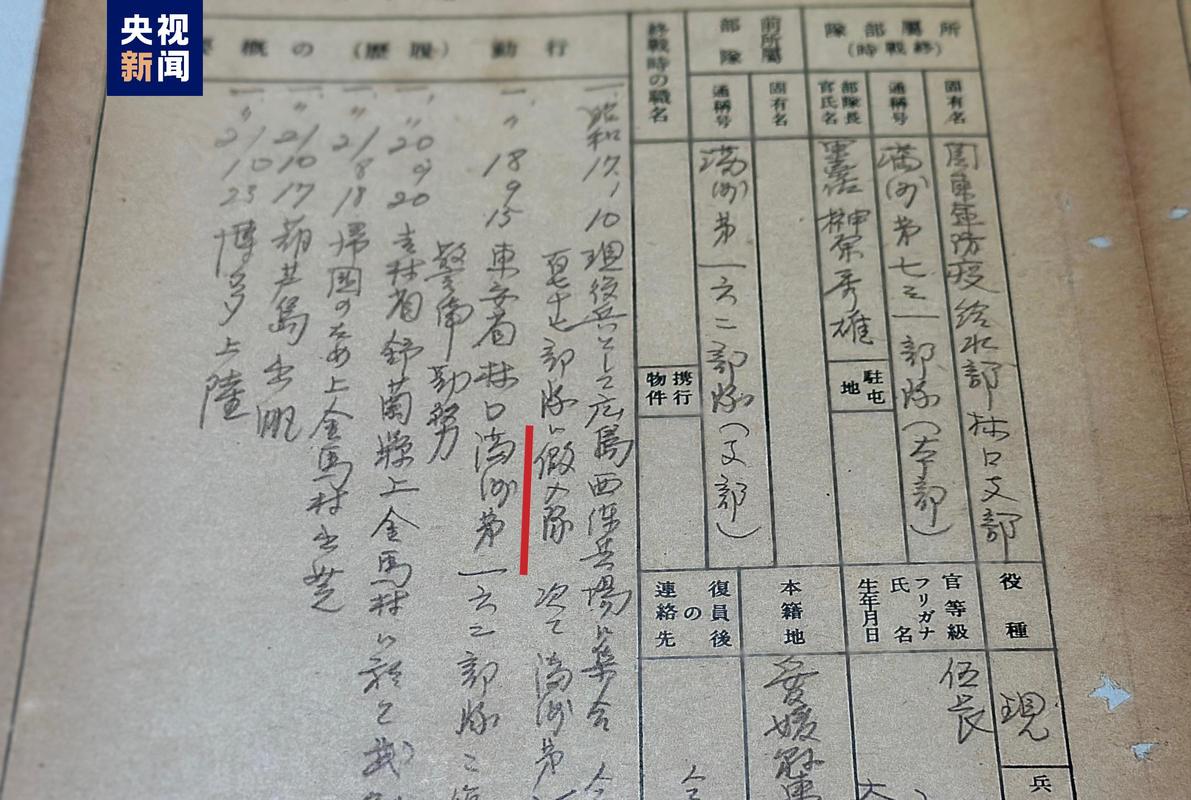 央视
新闻
所屬部隊
(終戰時)
固有名
関東軍防疫給水部林口支部
通稱号
満洲第七三一部隊(本部)
部隊長
官氏名
榊原秀雄
駐屯
地
前所屬
部隊
固有名
通稱号
満洲第一六二部隊(支部)
終戰時の職名
携行
物件
行動(履歴)の概要
一、昭和17.1.10現役兵として広島西練兵場に集合
部隊に仮入隊 次て満洲第
一、〃18 9 15東安省林口満洲第一六二部隊ニ
警備勤務
一、〃20 9 20吉林省舒蘭縣上金馬村ニ於て武
一、〃21 8 18帰国のため上金馬村出発
一、〃21 10 17葫芦島出帆
一、〃21 10 23博多上陸
役種
現
兵
官等級
フリガナ
氏名
生年月日
伍長
本籍地
愛媛縣
復員後
の
連絡先